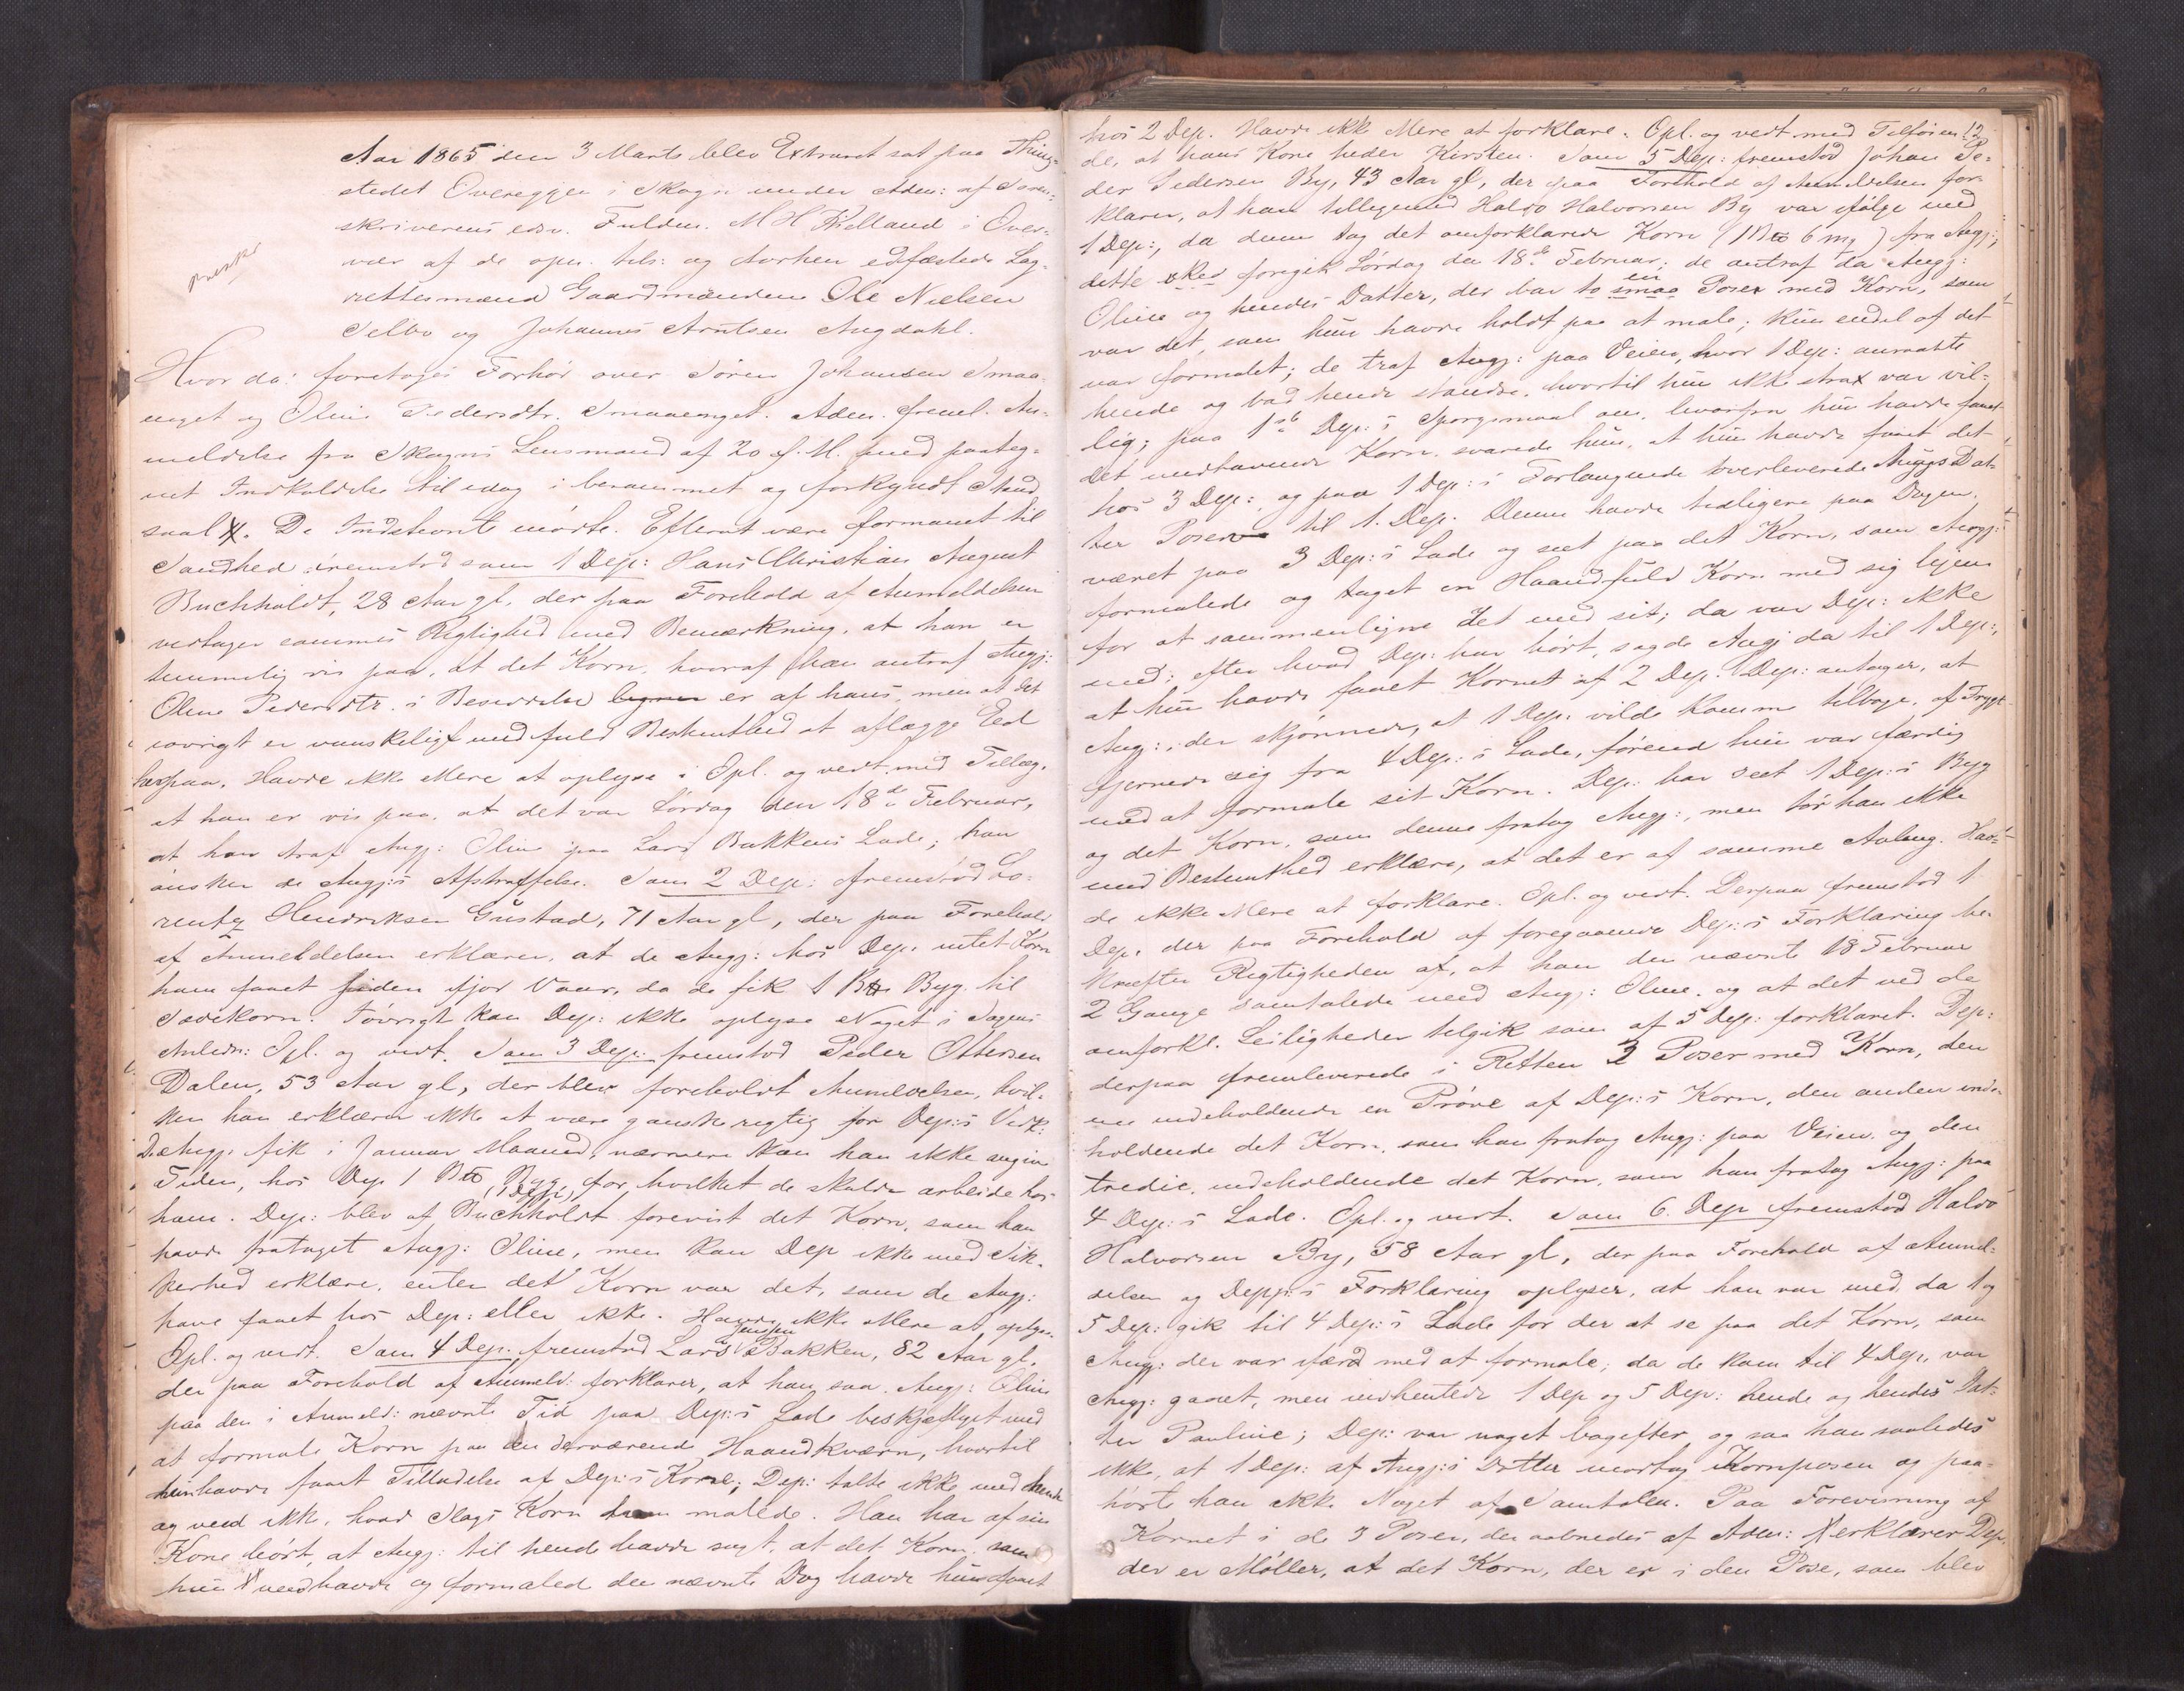 Aar 1865 den 3 Marts blev Extraret sat paa Thing-
stedet Overeggen i Skogn under Adm: af Soren-
skriverens edsv. Fuldm. M H Kielland i Over-
vær af de opn. tils: og dertil edfæstede Lag-
rettesmænd Gaardmændene Ole Nielsen
Selbo og Johannes Arntsen Augdahl.
Hvor da: foretoges Forhør over Sören Johansen Smaa-
enget og Oline Pedersdtr. Smaaenget. Adm. freml. An-
meldelse fra Skogns Lensmand af 20 f. M. med paateg-
net Indkaldelse til idag i berammet og forkyndt Stand
saal. De Indstevnte mødte. Efterat være formanet til
Sandhed fremstod som 1 Dep: Hans Christian August
Buchholdt, 28 Aar gl. der paa Forehold af Anmeldelsen
vedtager sammes Rigtighed med Bemærkning, at han er
temmelig vis paa, at det Korn, hvoraf han antraf Angj:
Oline Pedersdtr. i Besiddelse er af hans, men at det
iøvrigt er vanskeligt med fuld Bestemthed at aflægge Eed
herpaa. Havde ikke Mere at oplyse. Opl. og vedt. med Tillæg,
at han er vis paa, at det var Lørdag den 18de Februar,
at han traf Angj: Oline paa Lars Bakkens Lade; han
önsker de Angj:s Afstraffelse. Som 2 Dep: fremstod Lo-
rentz Henriksen Gustad, 71 Aar gl, der paa Forehold
af Anmeldelsen erklærer, at de Angj: hos Dep. intet Korn
have faaet siden ifjor Vaar, da de fik 1 Btt Byg til
Sædekorn. Iøvrigt kan Dep: ikke oplyse Noget i Sagens
Anledn: Opl. og vedt. Som 3 Dep: fremstod Peder Ottersen
Dalen, 53 Aar gl, der blev foreholdt Anmeldelsen, hvil-
ken han erklærer ikke at være ganske rigtig for Dep:s Vedk:
De Angj. fik i Januar Maaned, nærmere kan han ikke angive
Tiden, hos Dep 1 Btt Byg, for hvilket de skulde arbeide hos
ham. Dep: blev af Buchholdt (1 Dep:) forevist det Korn, som han
havde frataget Angj: Oline, men kan Dep ikke med Sik-
kerhed erklære, enten det Korn var det, som de Angj:
have faaet hos Dep: eller ikke. Havde ikke Mere at oplyse.
Opl. og vedt. Som 4 Dep. fremstod Lars Jensen Bakken, 82 Aar gl.
der paa Forehold af Anmeld: forklarer, at han saa Angj: Oline
paa den i Anmeld: nævnte Tid paa Dep:s Lade beskjæftiget med
at formale Korn paa en derværende Haandkværn, hvortil
hun havde faaet Tilladelse af Dep:s Kone; Dep: talte ikke med hende
og veed ikke, hvad Slags Korn hun malede. Han har af sin
Kone hört, at Angj: til hende havde sagt, at det Korn som
hun medhavde og formaled den nævnte Dag havde hun faaet
12
hos 2 Dep. Havde ikke Mere at forklare. Opl. og vedt. med Tilföien-
de, at hans Kone heder Kirsten. Som 5 Dep: fremstod Johan Pe-
der Pedersen By, 43 Aar gl, der paa Forehold af Anmeldelsen for-
klarer, at han tilligemed Halvo Halvorsen By var ifølge med
1 Dep:, da denne tog det omforklarede Korn (1 Btt 6 mk) fra Angj:,
dette sked foregik Lördag den 18de Februar; de antraf da Angj:
Oline og hendes Datter, der bar to smaa en Poser med Korn, som
var det, som hun havde holdt paa at male; kun endel af det
var formalet; de traf Angj: paa Veien, hvor 1 Dep: anraabte
hende og bad hende standse, hvortil hun ikke strax var vil-
lig; paa 1ste Dep:s Spørgsmaal om, hvorfra hun havde faaet
det medhavende Korn, svarede hun, at hun havde faaet det
hos 3 Dep:, og paa 1 Dep:s Forlangende overleverede Angjs Dat-
ter Posen til 1. Dep. Denne havde tidligere paa Dagen
været paa 3 Dep:s Lade og seet paa det Korn, som Angj:
formalede og taget en Haandfuld Korn med sig hjem
for at sammenligne det med sit; da var Dep: ikke
med; efter hvad Dep: har hört, sagde Angj da til 1 Dep:,
at hun havde faaet Kornet af 2 Dep. Dep: antager, at
Ang:, der skjønnede, at 1 Dep: vilde komme tilbage, af Frygt
fjernede sig fra 4 Dep:s Lade, førend hun var færdig
med at formale sit Korn. Dep: har seet 1 Dep:s Byg
og det Korn, som denne fratog Angj:, men tör han ikke
med Bestemthed erklære, at det er af samme Avling. Hav-
de ikke Mere at forklare. Opl. og vedt. Derpaa fremstod 1
Dep. der paa Forehold af foregaaende Dep:s Forklaring be-
kræfter Rigtigheden af, at han den nævnte 18 Februar
2 Gange samtalede med Angj: Oline. og at det ved de
omforkl. Leiligheder tilgik som af 5 Dep: forklaret. Dep:
derpaa fremleverede i Retten 3 Poser med Korn, den
ene indeholdende en Pröve af Dep:s Korn, den anden inde-
holdende det Korn, som han fratog Angj: paa Veien og den
tredie, indeholdende det Korn, som han fratog Angj: paa
4 Dep:s Lade. Opl. og vedt. Som 6. Dep fremstod Halvo
Halvorsen By, 58 Aar gl, der paa Forehold af Anmel-
delsen og Depp:s Forklaring oplyser, at han var med, da 1 og
5 Dep: gik til 4 Dep:s Lade for der at se paa det Korn, som
Angj: der var ifærd med at formale; da de kom til 4 Dep, var
Angj: gaaet, men indhentede 1 Dep og 5 Dep: hende og hendes Dat-
ter Pauline; Dep: var noget bagefter og saa han saaledes
ikke, at 1 Dep: af Angj:s Datter modtog Kornposen og paa-
hörte han ikke Noget af Samtalen. Paa Forevisning af
Kornet i de 3 Poser, der aabnedes af Adm: erklærer Dep,
der er Möller, at det Korn, der er i den Pose, som blev